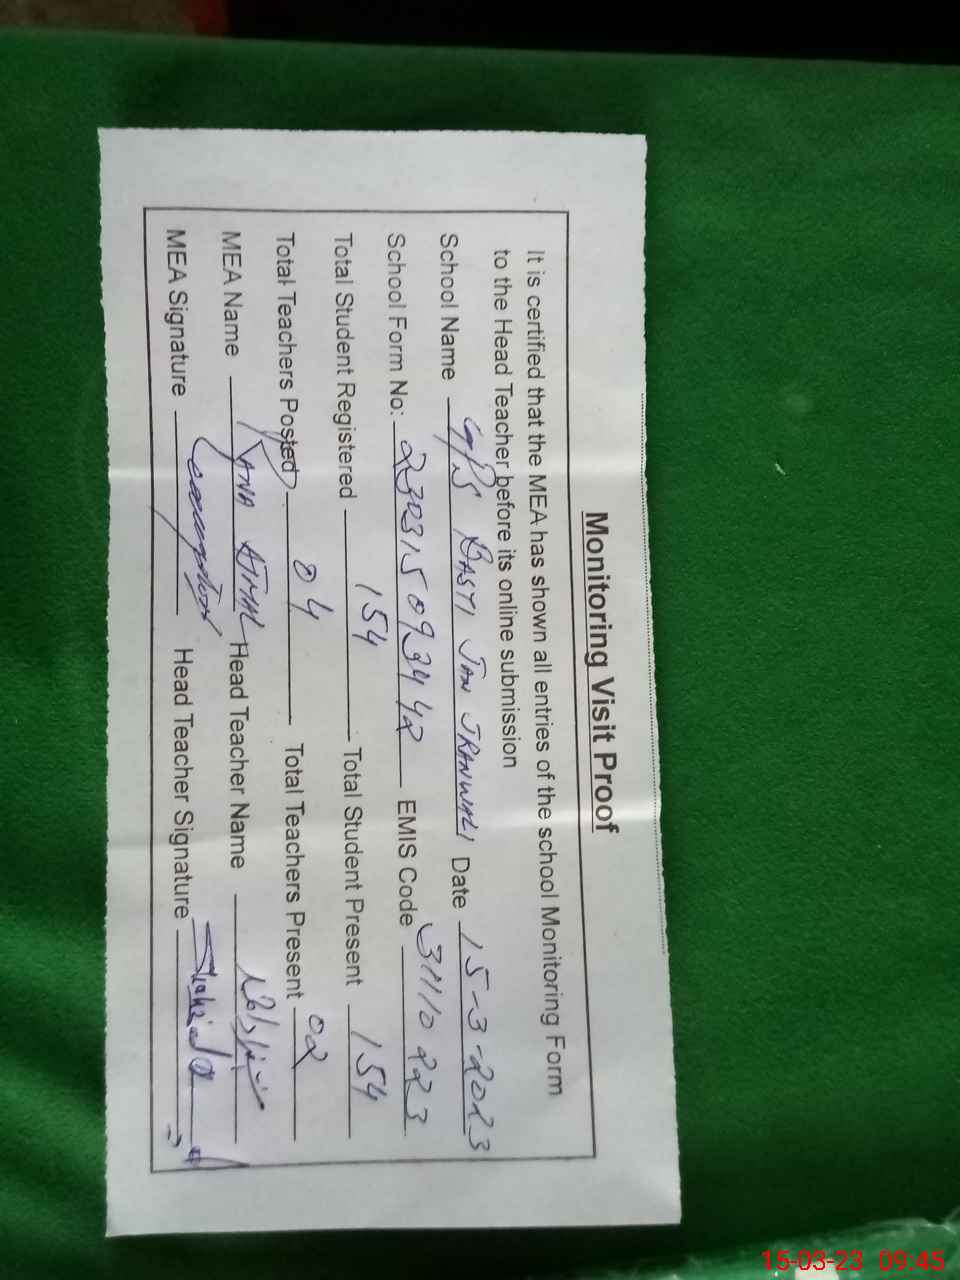 Monitoring Visit Proof
It is certified that the MEA has shown all entries of the school Monitoring Form
to the Head Teacher before its online submission
School Name GPS BASTI JAN JRANWALI Date 15-3-2023
School Form No: 230315093442 EMIS Code 31110223
Total Student Registered 154 Total Student Present 154
Total Teachers Posted 04 Total Teachers Present 02
MEA Name RANA AJMAL Head Teacher Name
MEA Signature Head Teacher Signature
15-03-23 09:45